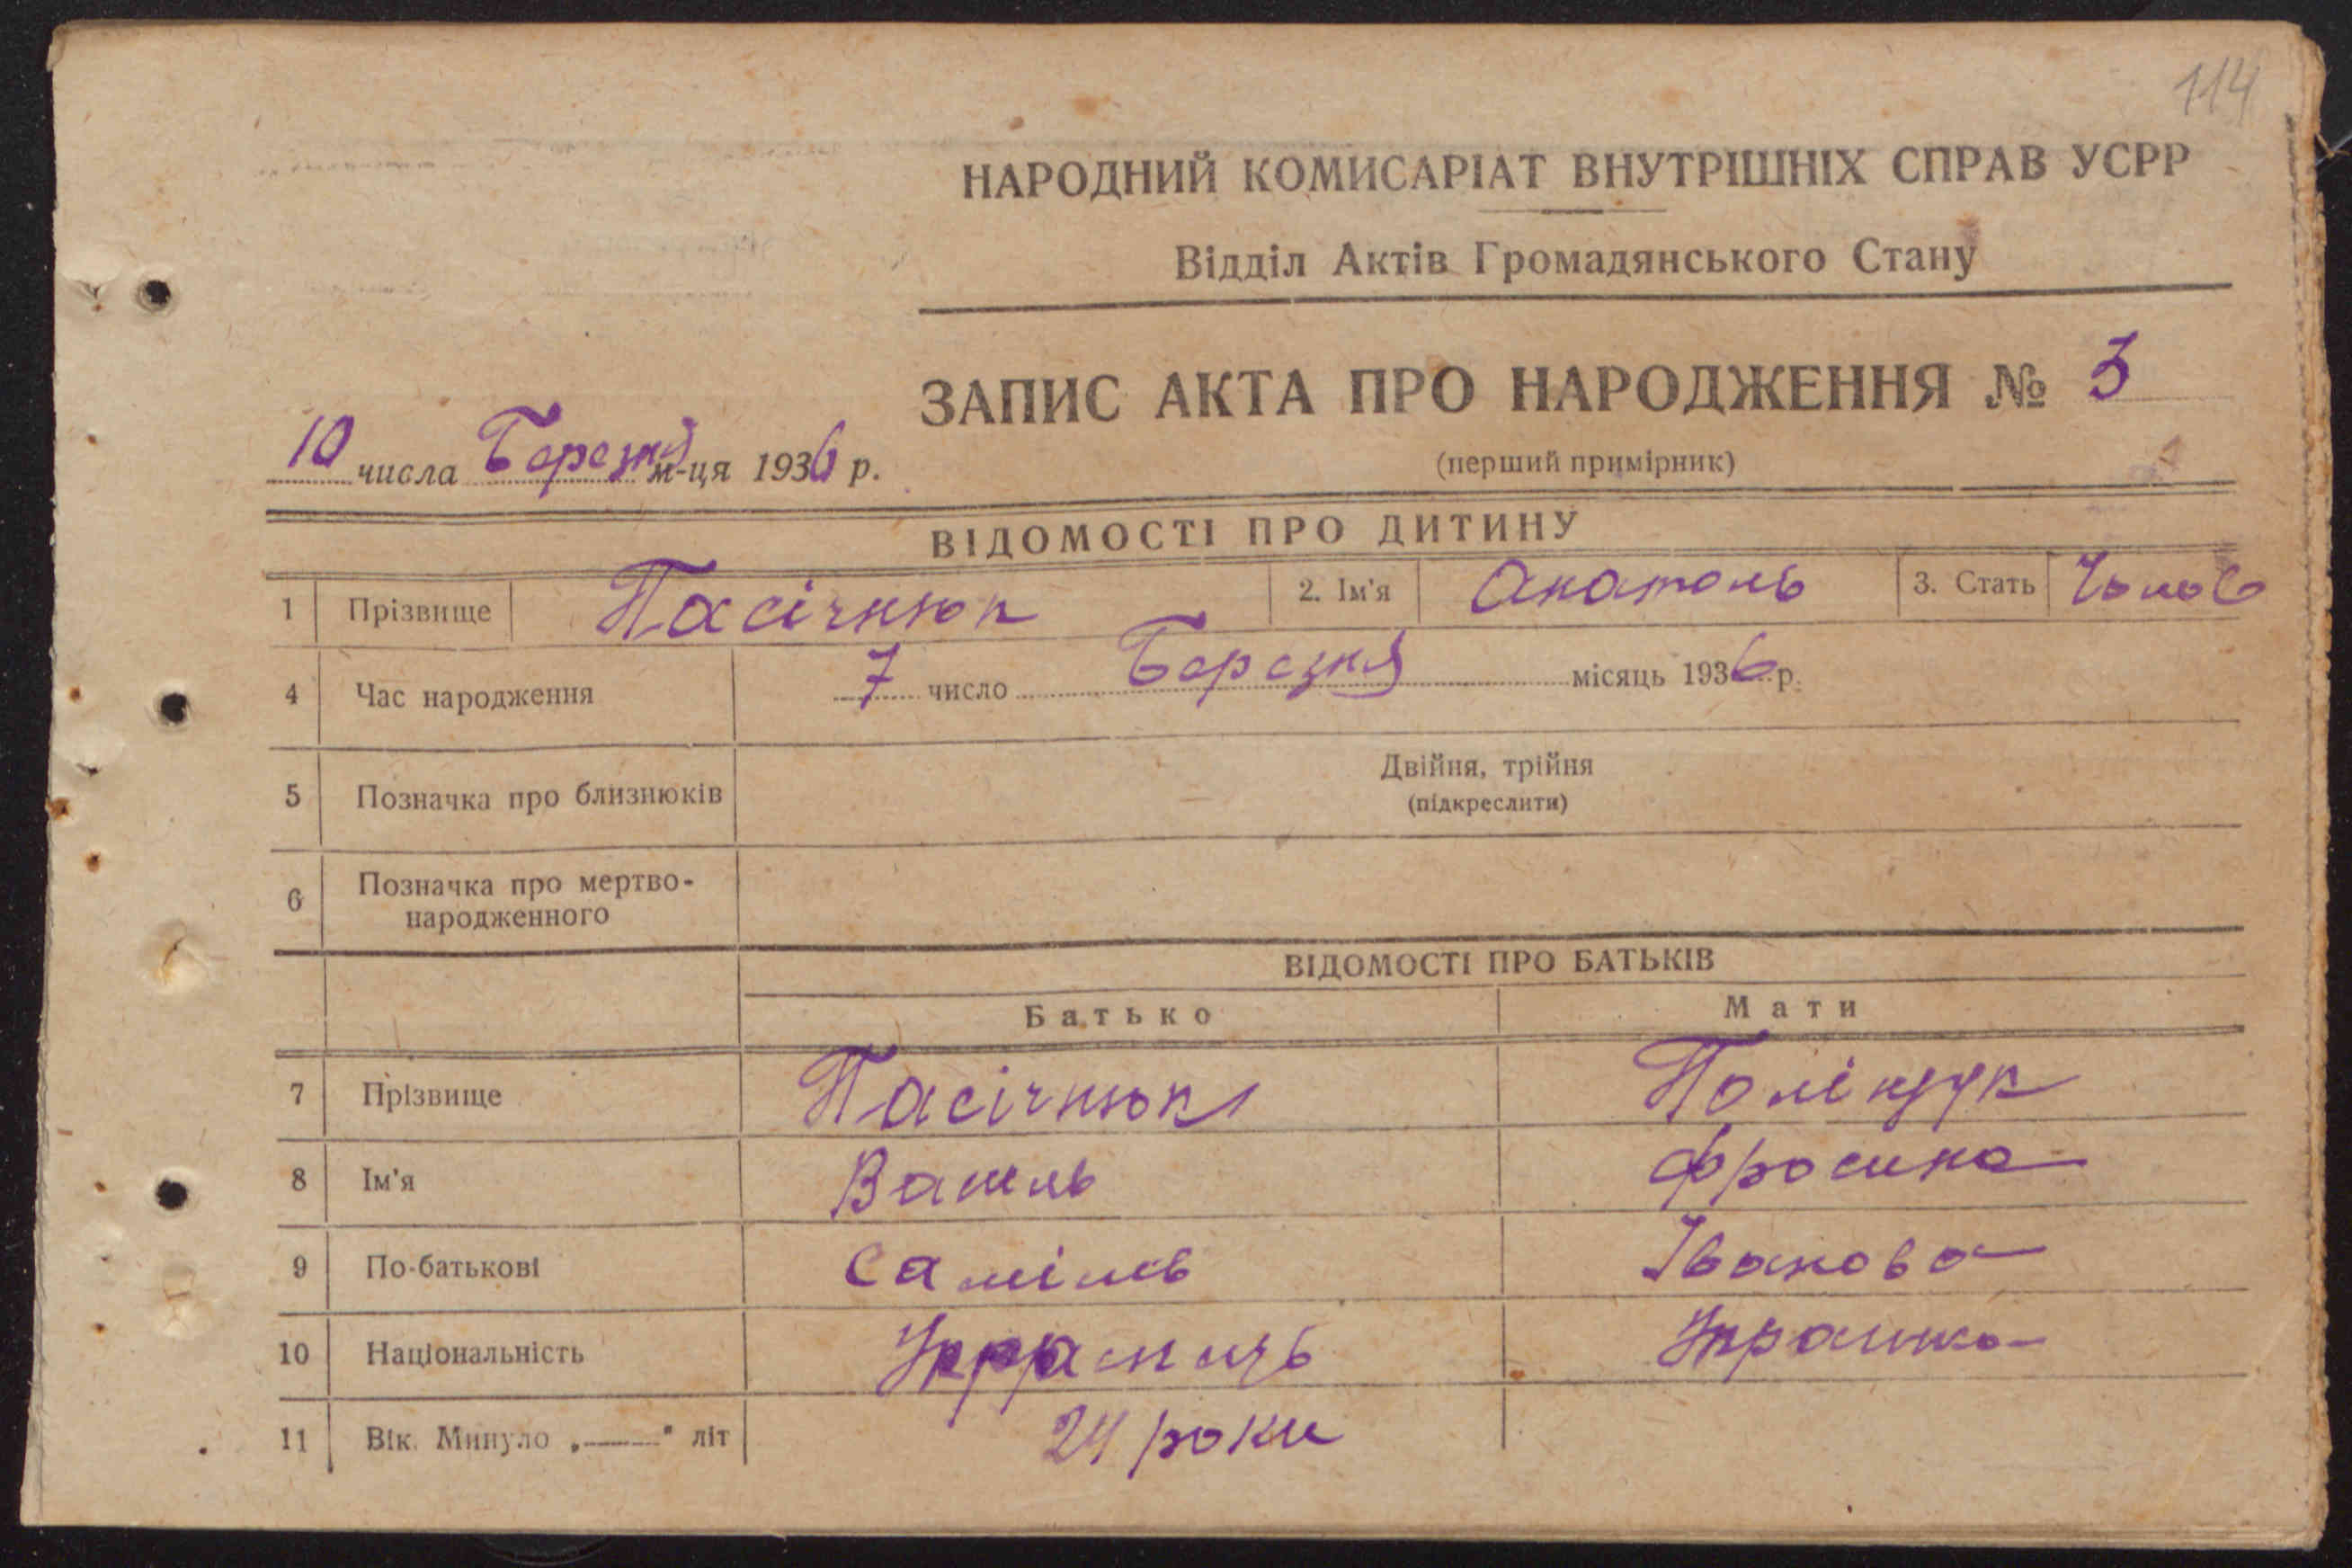 114
НАРОДНИЙ КОМИСАРІАТ ВНУТРІШНІХ СПРАВ УСРР
Відділ Актів Громадянського Стану
ЗАПИС АКТА ПРО НАРОДЖЕННЯ № 3
10 числа Березня м-ця 1936 р.
(перший примірник)
ВІДОМОСТІ ПРО ДИТИНУ
1 Прізвище Пасічнюк 2. Ім'я Анатоль 3. Стать Чолов
4 Час народження 7 число Березня місяць 1936 р.
5 Позначка про близнюків Двійня, трійня
(підкреслити)
6 Позначка про мертво-
народженного
ВІДОМОСТІ ПРО БАТЬКІВ
Батько Мати
7 Прізвище Пасічнюк Поліщук
8 Ім'я Василь Фросина
9 По-батькові Самілів Іванова
10 Національність Українець Українка
11 Вік. Минуло „——" літ 24 роки